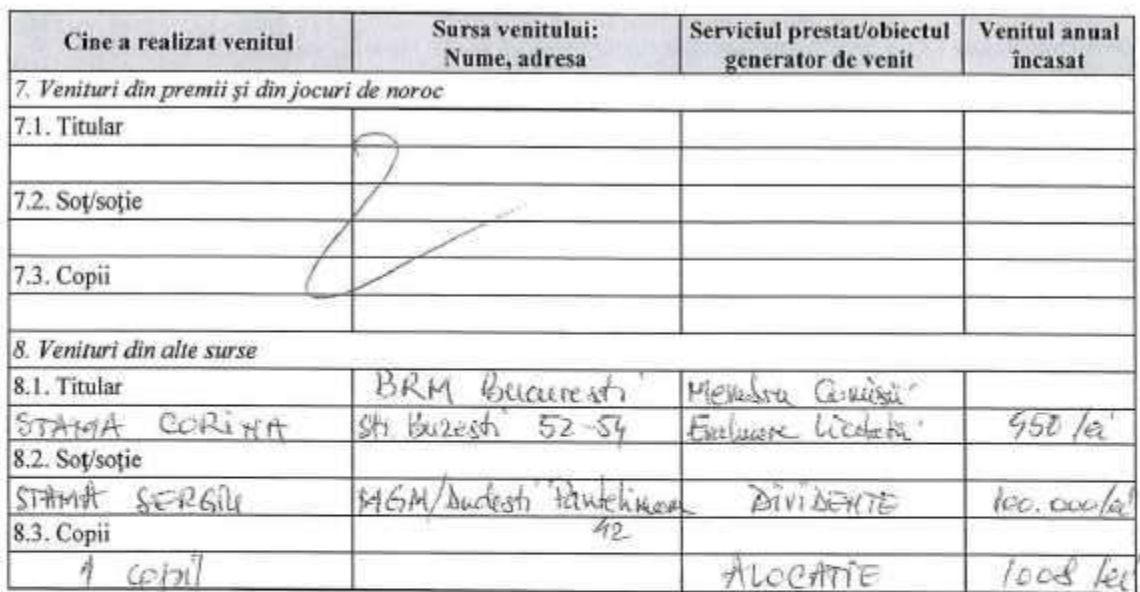 Cine a realizat venitul | Sursa venitului: Nume, adresa | Serviciul prestat/obiectul generator de venit | Venitul anual încasat
7. Venituri din premii și din jocuri de noroc
7.1. Titular
7.2. Soț/soție
7.3. Copii
8. Venituri din alte surse
8.1. Titular | BRM Bucuresti | Membru Comisii
STAMA CORINA | Str. Buzesti 52-54 | Evaluare Licitatii | 950 lei
8.2. Soț/soție
STAMA SERGIU | MGM/Dudesti Pantelimon | DIVIDENTE | 100.000 lei
8.3. Copii | 42
1 copil | ALOCATIE | 1008 lei